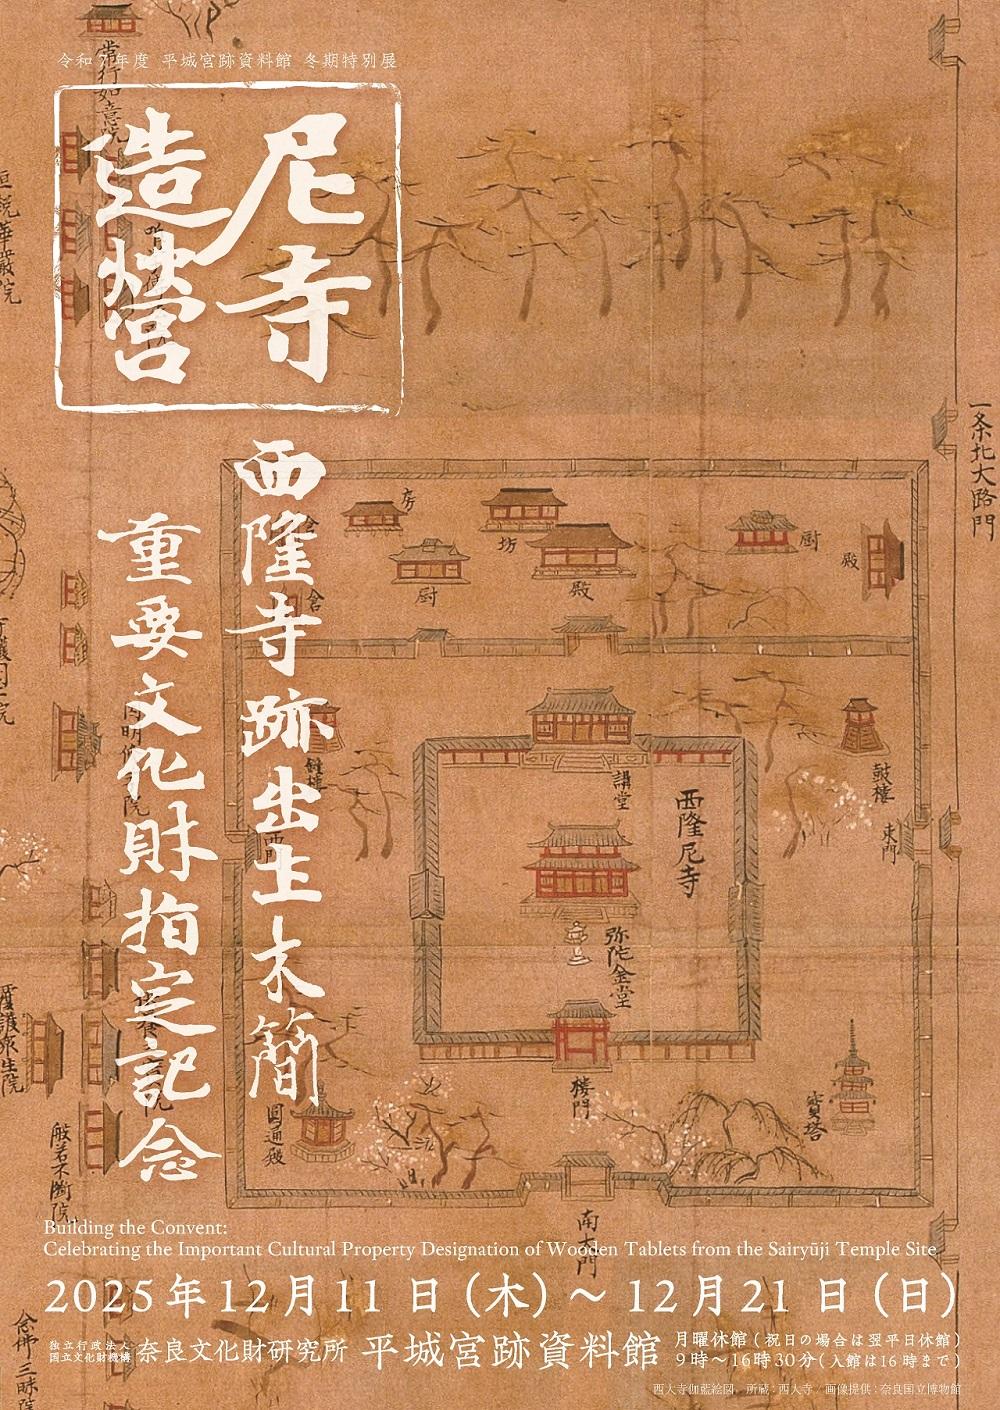 令和7年度 平城宮跡資料館 冬期特別展
尼寺
造営
西隆寺跡出土木簡
重要文化財指定記念
常行如意院
一条北大路門
房
坊
厨
殿
厨
殿
倉
倉
講堂
西隆尼寺
鼓楼
東門
弥陀金堂
楼門
宝塔
円通殿
南大門
般若不断院
念仏三昧院
Building the Convent:
Celebrating the Important Cultural Property Designation of Wooden Tablets from the Sairyūji Temple Site
2025年12月11日(木)～12月21日(日)
独立行政法人
国立文化財機構
奈良文化財研究所 平城宮跡資料館
月曜休館(祝日の場合は翌平日休館)
9時～16時30分(入館は16時まで)
西大寺伽藍絵図、所蔵:西大寺/画像提供:奈良国立博物館